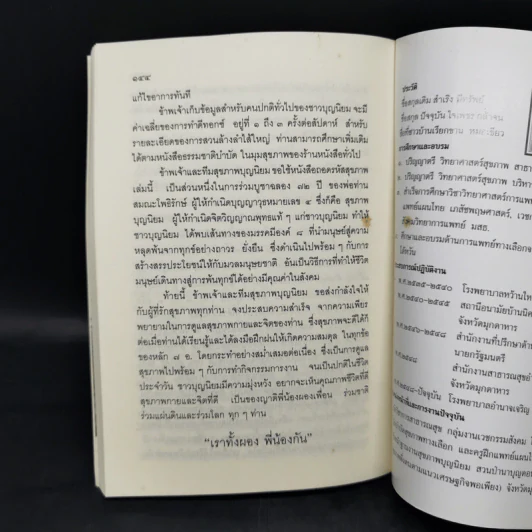 ๑๔๔
แก้ไขอาการทันที
ข้าพเจ้าเก็บข้อมูลสำหรับคนปกติทั่วไปของชาวบุญนิยม จะมี
ค่าเฉลี่ยของการทำดีทอกซ์ อยู่ที่ ๑ ถึง ๓ ครั้งต่อสัปดาห์ สำหรับ
รายละเอียดของการสวนล้างลำไส้ใหญ่ ท่านสามารถศึกษาเพิ่มเติม
ได้ตามหนังสือธรรมชาติบำบัด ในมุมสุขภาพของร้านหนังสือทั่วไป
ข้าพเจ้าและทีมสุขภาพบุญนิยม ขอใช้หนังสือถอดรหัสสุขภาพ
เล่มนี้ เป็นส่วนหนึ่งในการร่วมบูชาฉลอง ๗๒ ปี ของพ่อท่าน
สมณะโพธิรักษ์ ผู้ให้กำเนิดบุญญาวุธหมายเลข ๔ ซึ่งก็คือ สุขภาพ
บุญนิยม ผู้ให้กำเนิดจิตวิญญาณพุทธแท้ ๆ แก่ชาวบุญนิยม ทำให้
ชาวบุญนิยม ได้พบเส้นทางของมรรคมีองค์ ๘ ที่นำมนุษย์สู่ความ
หลุดพ้นจากทุกข์อย่างถาวร ยั่งยืน ซึ่งดำเนินไปพร้อม ๆ กับการ
สร้างสรรประโยชน์ให้กับมวลมนุษยชาติ อันเป็นวิธีการที่ทำให้ชีวิต
มนุษย์เดินทางสู่การพ้นทุกข์ได้อย่างมีคุณค่าในสังคม
ท้ายนี้ ข้าพเจ้าและทีมสุขภาพบุญนิยม ขอส่งกำลังใจให้
กับผู้ที่รักสุขภาพทุกท่าน จงประสบความสำเร็จ จากความเพียร
พยายามในการดูแลสุขภาพกายและจิตของท่าน ซึ่งสุขภาพจะดีได้ก็
ต่อเมื่อท่านได้เรียนรู้และได้ลงมือฝึกฝนให้เกิดความสมดุล ในทุกข้อ
ของหลัก ๗ อ. โดยกระทำอย่างสม่ำเสมอต่อเนื่อง ซึ่งเป็นการดูแล
สุขภาพไปพร้อม ๆ กับการทำกิจกรรมการงาน จนเป็นปกติในชีวิต
ประจำวัน ชาวบุญนิยมมีความมุ่งหวัง อยากจะเห็นคุณภาพชีวิตที่ดี
สุขภาพกายและจิตที่ดี เป็นของญาติพี่น้องผองเพื่อน ร่วมชาติ
ร่วมแผ่นดินและร่วมโลก ทุก ๆ ท่าน
“เราทั้งผอง พี่น้องกัน”
ประวัติ
ชื่อสกุลเดิม สำเริง มีทรัพย์
ชื่อสกุล ปัจจุบัน ใจเพชร กล้าจน
ชื่อที่ชาวบ้านเรียกขาน หมอเขียว
การศึกษาและอบรม
ปริญญาตรี วิทยาศาสตร์สุขภาพ
ปริญญาตรี วิทยาศาสตร์สุขภาพ
สำเร็จการศึกษาวิชาวิทยาศาสตร์การแพทย์
แพทย์แผนไทย เภสัชพฤกษศาสตร์,
วิทยาการแพทย์ มสธ.
ศึกษาและอบรมด้านการแพทย์ทางเลือก
ไต้หวัน
โรงพยาบาลหว้านใหญ่
สถานีอนามัยบ้าน
จังหวัดมุกดาหาร
สำนักงานที่ปรึกษา
นายกรัฐมนตรี
สำนักงานสาธารณสุข
จังหวัดมุกดาหาร
โรงพยาบาลอำนาจเจริญ